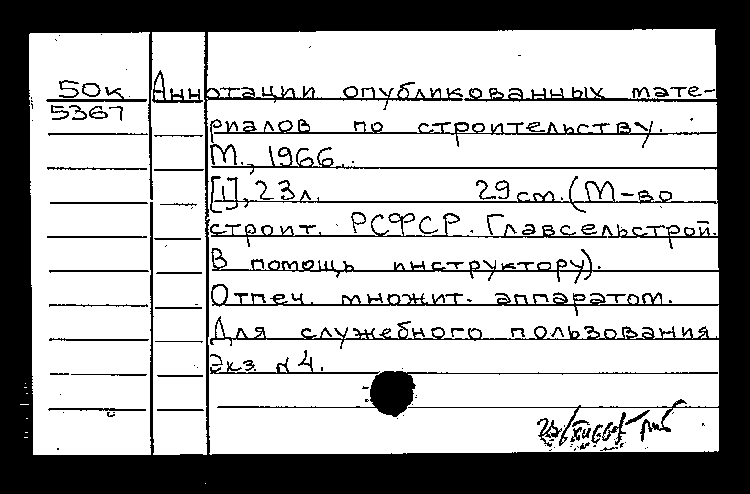 50к Аннотации опубликованных мате-
5367
риалов по строительству.
М., 1966.
[1], 23 л. 29 см. (М-во
строит. РСФСР. Главсельстрой.
В помощь инструктору).
Отпеч. множит. аппаратом.
Для служебного пользования.
Экз. N 4.